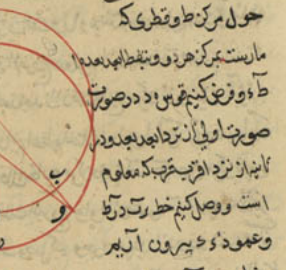 حول مرکز ط و قطری که
مارست بمرکز هر دو و بنقطۀ ابعد بعد ا
ط ء و فرض کنیم قوس د د در صورت
صورت اولی از نزد ابعد بعد و در
ثانیه از نزد اقرب قرب که معلوم
است و وصل کنیم خط
و عمود ء د بیرون آریم
ب
و